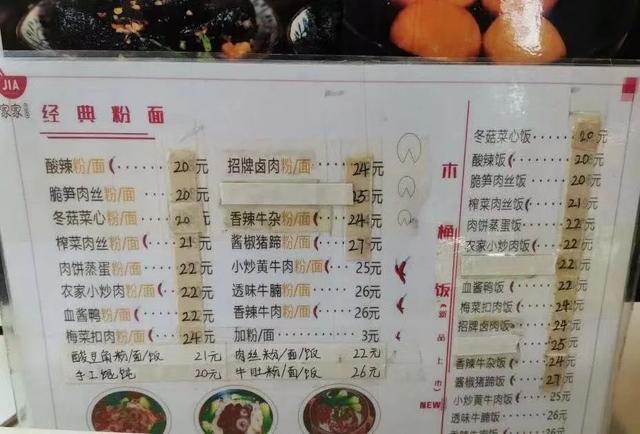 JIA
家家
经典粉面
酸辣粉/面 20元
脆笋肉丝粉/面 20元
冬菇菜心粉/面 20元
榨菜肉丝粉/面 21元
肉饼蒸蛋粉/面 22元
农家小炒肉粉/面 22元
血酱鸭粉/面 22元
梅菜扣肉粉/面 24元
酸豆角粉/面/饭 21元
手工馄饨 20元
招牌卤肉粉/面 24元
25元
香辣牛杂粉/面 24元
酱椒猪蹄粉/面 27元
小炒黄牛肉粉/面 25元
透味牛腩粉/面 26元
香辣牛肉粉/面 26元
加粉/面 3元
肉丝粉/面/饭 22元
牛肚粉/面/饭 26元
木桶饭(新品上市)
NEW
冬菇菜心饭 20元
酸辣饭 20元
脆笋肉丝饭 20元
榨菜肉丝饭 21元
肉饼蒸蛋饭 22元
农家小炒肉饭 22元
22元
血酱鸭饭 22元
梅菜扣肉饭 24元
招牌卤肉饭 24元
25元
香辣牛杂饭 24元
酱椒猪蹄饭 27元
小炒黄牛肉饭 25元
透味牛腩饭 26元
香辣牛肉饭 26元